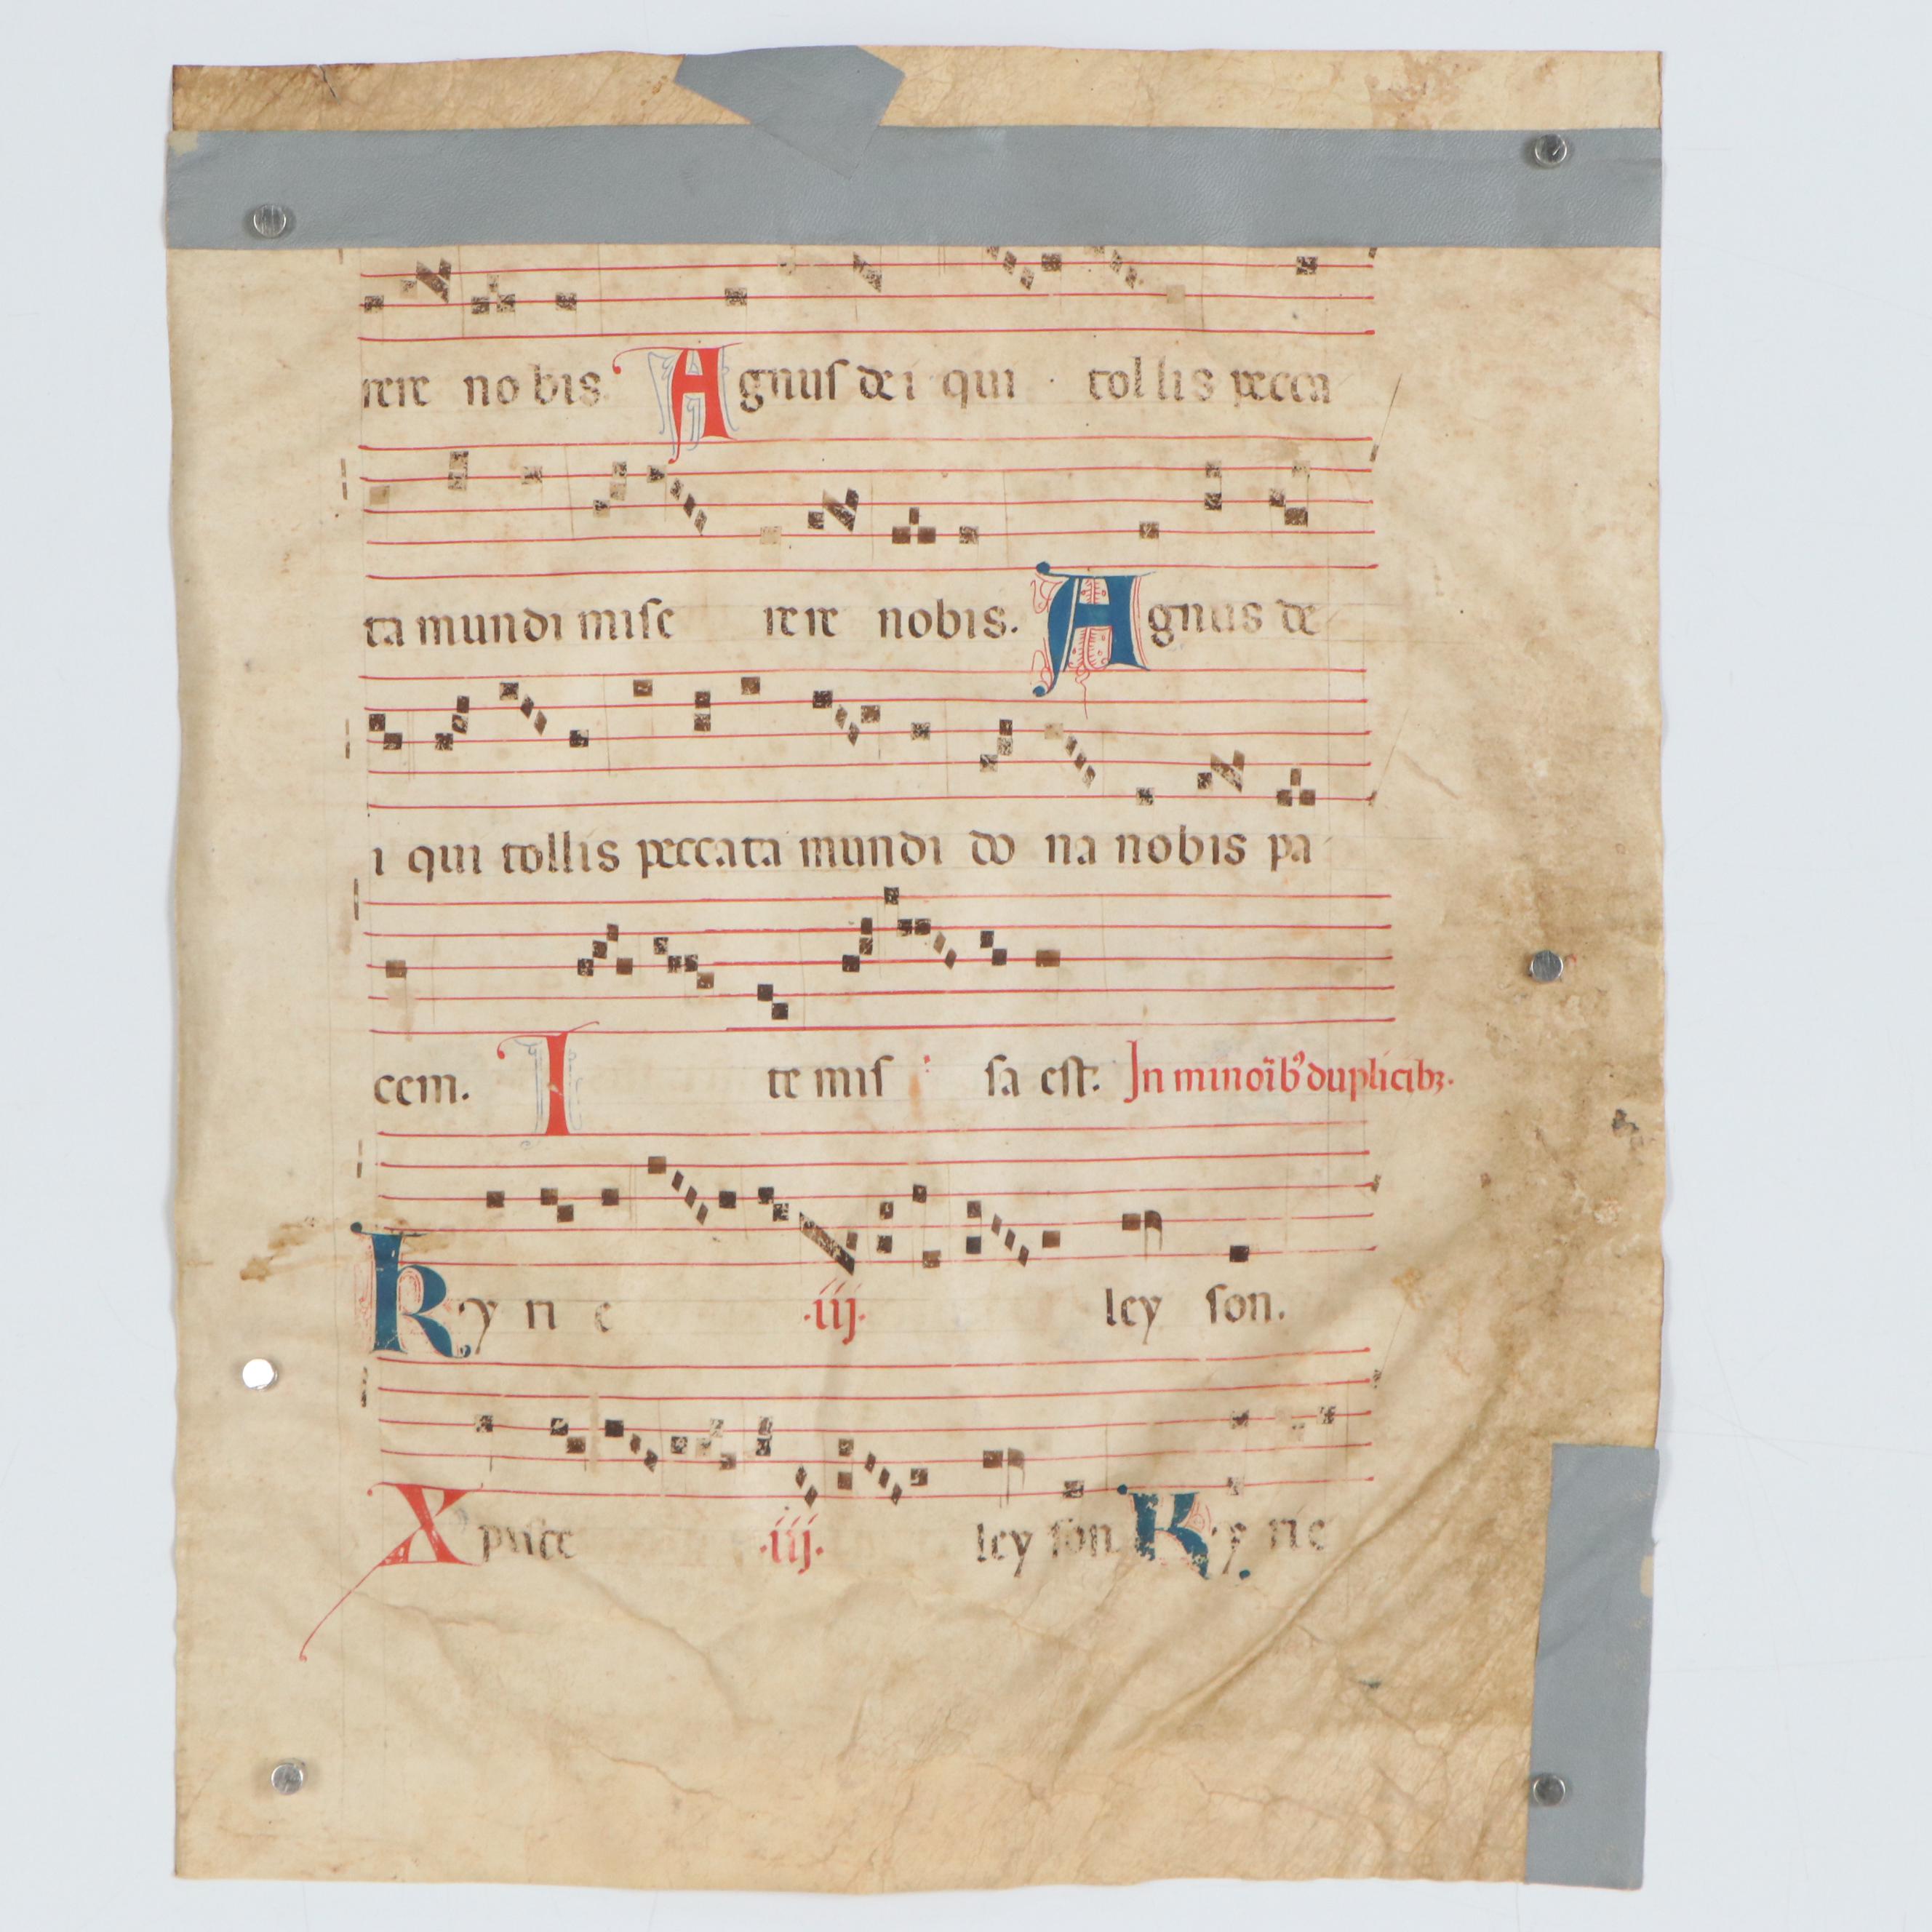 rere no bis Agnus de i qui tol lis pecca
ta mundi mise rere nobis. Agnus de
i qui tollis peccata mundi do na nobis pa
cem. I te mis sa est. In minoib9 duplicibz.
Ky ri e .iij. ley son.
Xpiste .iij. ley son. Ky rie